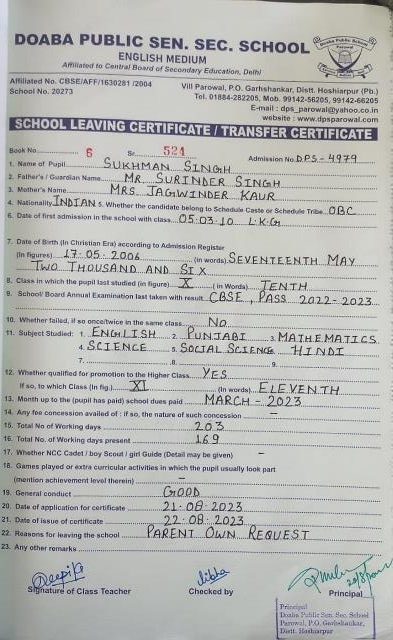 DOABA PUBLIC SEN. SEC. SCHOOL
ENGLISH MEDIUM
Affiliated to Central Board of Secondary Education, Delhi
Doaba Public School
Parowal
Affiliated No. CBSE/AFF/1630281 /2004
School No. 20273
Vill Parowal, P.O. Garhshankar, Distt. Hoshiarpur (Pb.)
Tel. 01884-282205, Mob. 99142-56205, 99142-66205
E-mail : dps_parowal@yahoo.co.in
website : www.dpsparowal.com
SCHOOL LEAVING CERTIFICATE / TRANSFER CERTIFICATE
Book No. 6 Sr. 524 Admission No. DPS-4979
1. Name of Pupil SUKHMAN SINGH
2. Father's / Guardian Name MR. SURINDER SINGH
3. Mother's Name MRS. JAGWINDER KAUR
4. Nationality INDIAN 5. Whether the candidate belong to Schedule Caste or Schedule Tribe OBC
6. Date of first admission in the school with class 05.03.10 L.K.G
7. Date of Birth (In Christian Era) according to Admission Register
(In figures) 17.05.2006 (in words) SEVENTEENTH MAY
TWO THOUSAND AND SIX
8. Class in which the pupil last studied (in figure) X (in Words) TENTH
9. School/ Board Annual Examination last taken with result CBSE, PASS 2022-2023
10. Whether failed, if so once/twice in the same class No
11. Subject Studied: 1. ENGLISH 2. PUNJABI 3. MATHEMATICS
4. SCIENCE 5. SOCIAL SCIENCE HINDI
7. 8. 9.
12. Whether qualified for promotion to the Higher Class YES
If so, to which Class (In fig.) XI (In words) ELEVENTH
13. Month up to the (pupil has paid) school dues paid MARCH - 2023
14. Any fee concession availed of : if so, the nature of such concession -
15. Total No of Working days 203
16. Total No. of Working days present 169
17. Whether NCC Cadet / boy Scout / girl Guide (Detail may be given) -
18. Games played or extra curricular activities in which the pupil usually look part
(mention achievement level therein) -
19. General conduct GOOD
20. Date of application for certificate 21.08.2023
21. Date of issue of certificate 22.08.2023
22. Reasons for leaving the school PARENT OWN REQUEST
23. Any other remarks
Deepika
Signature of Class Teacher
Checked by
Principal
Principal
Doaba Public Sen. Sec. School
Parowal, P.O. Garhshankar,
Distt. Hoshiarpur